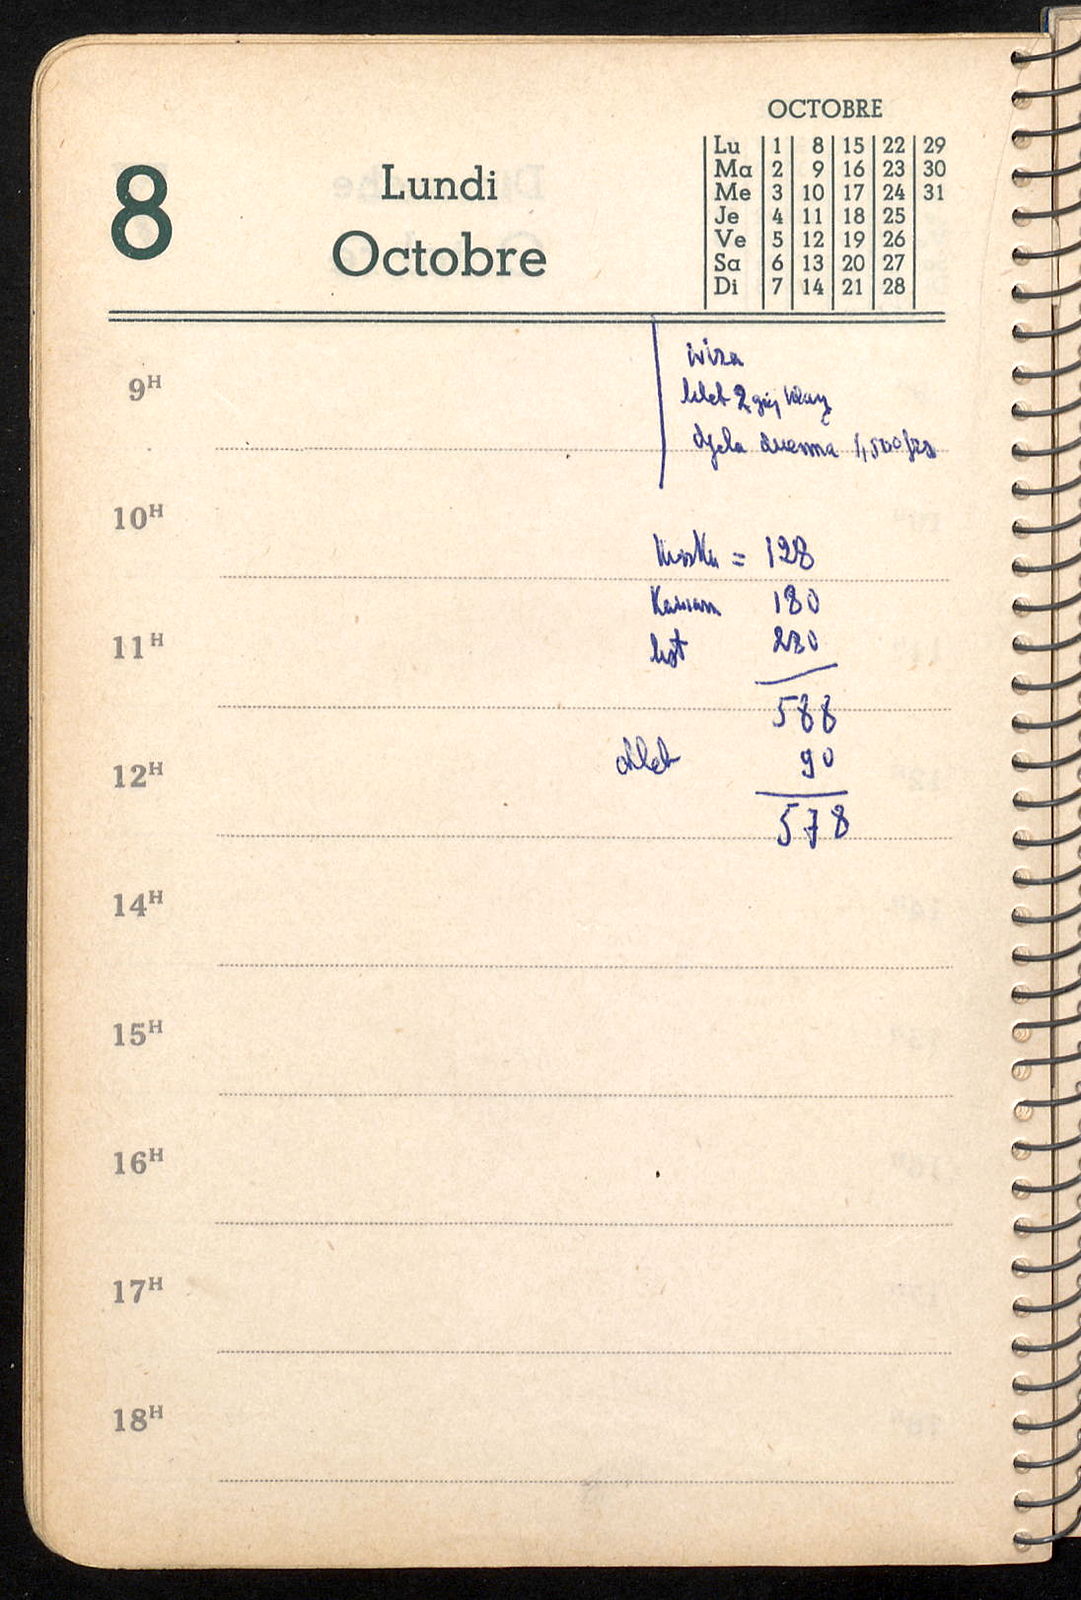 OCTOBRE
Lu 1 8 15 22 29
Ma 2 9 16 23 30
Me 3 10 17 24 31
Je 4 11 18 25
Ve 5 12 19 26
Sa 6 13 20 27
Di 7 14 21 28
8
Lundi
Octobre
wiza
bilet 2 giej klasy
djeta dzienna 1,500 frs
9H
10H
= 128
180
11H
list 230
588
12H
chleb 90
578
14H
15H
16H
17H
18H